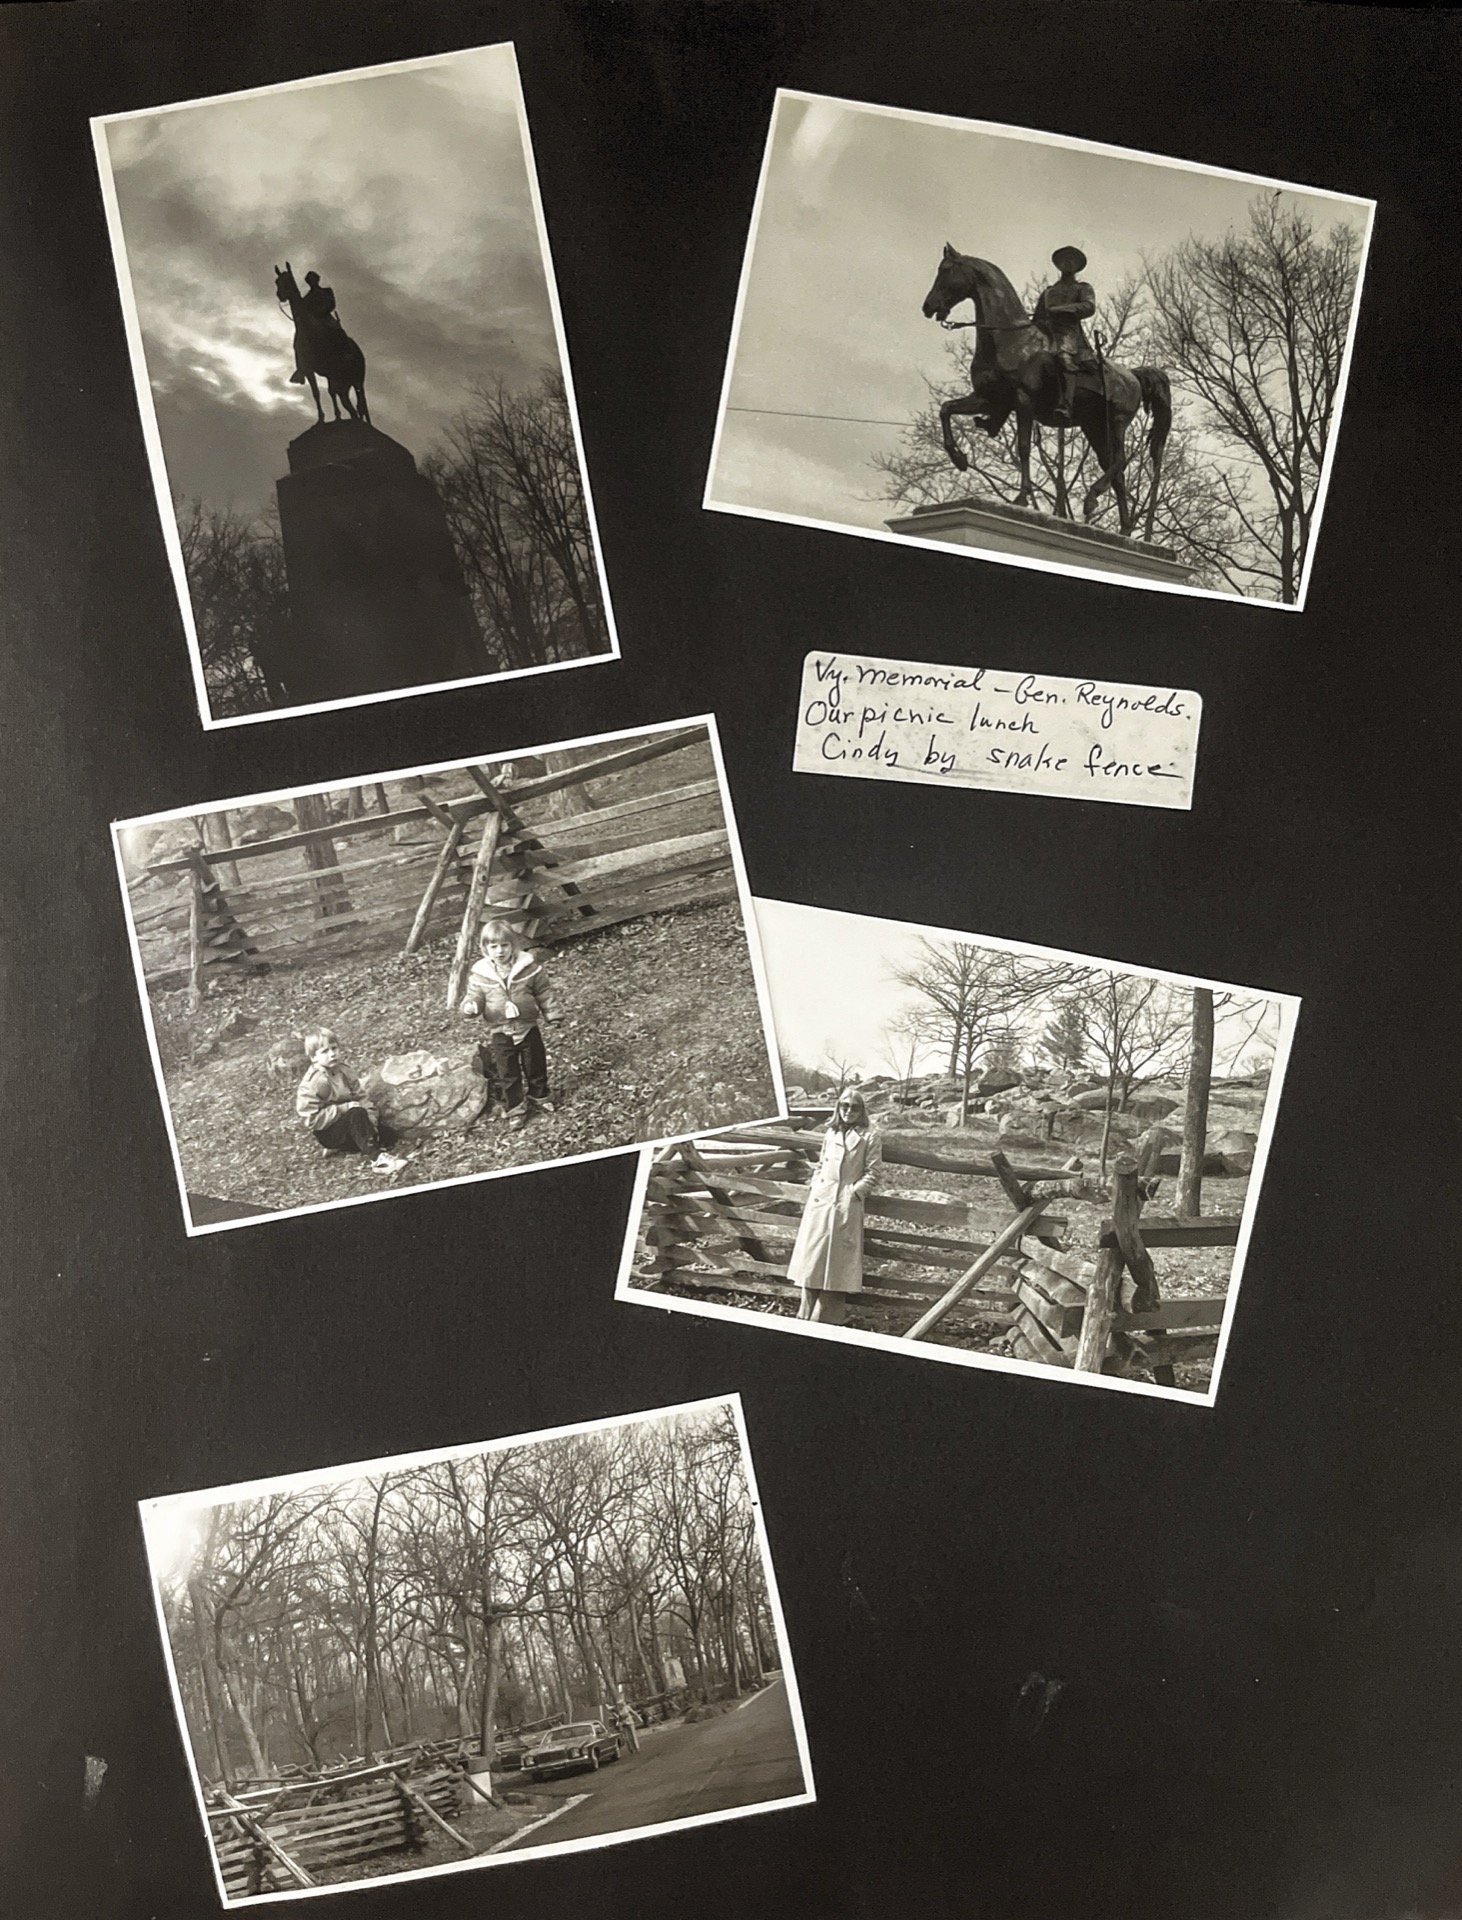 Vy. Memorial - Gen. Reynolds.
Our picnic lunch
Cindy by snake fence